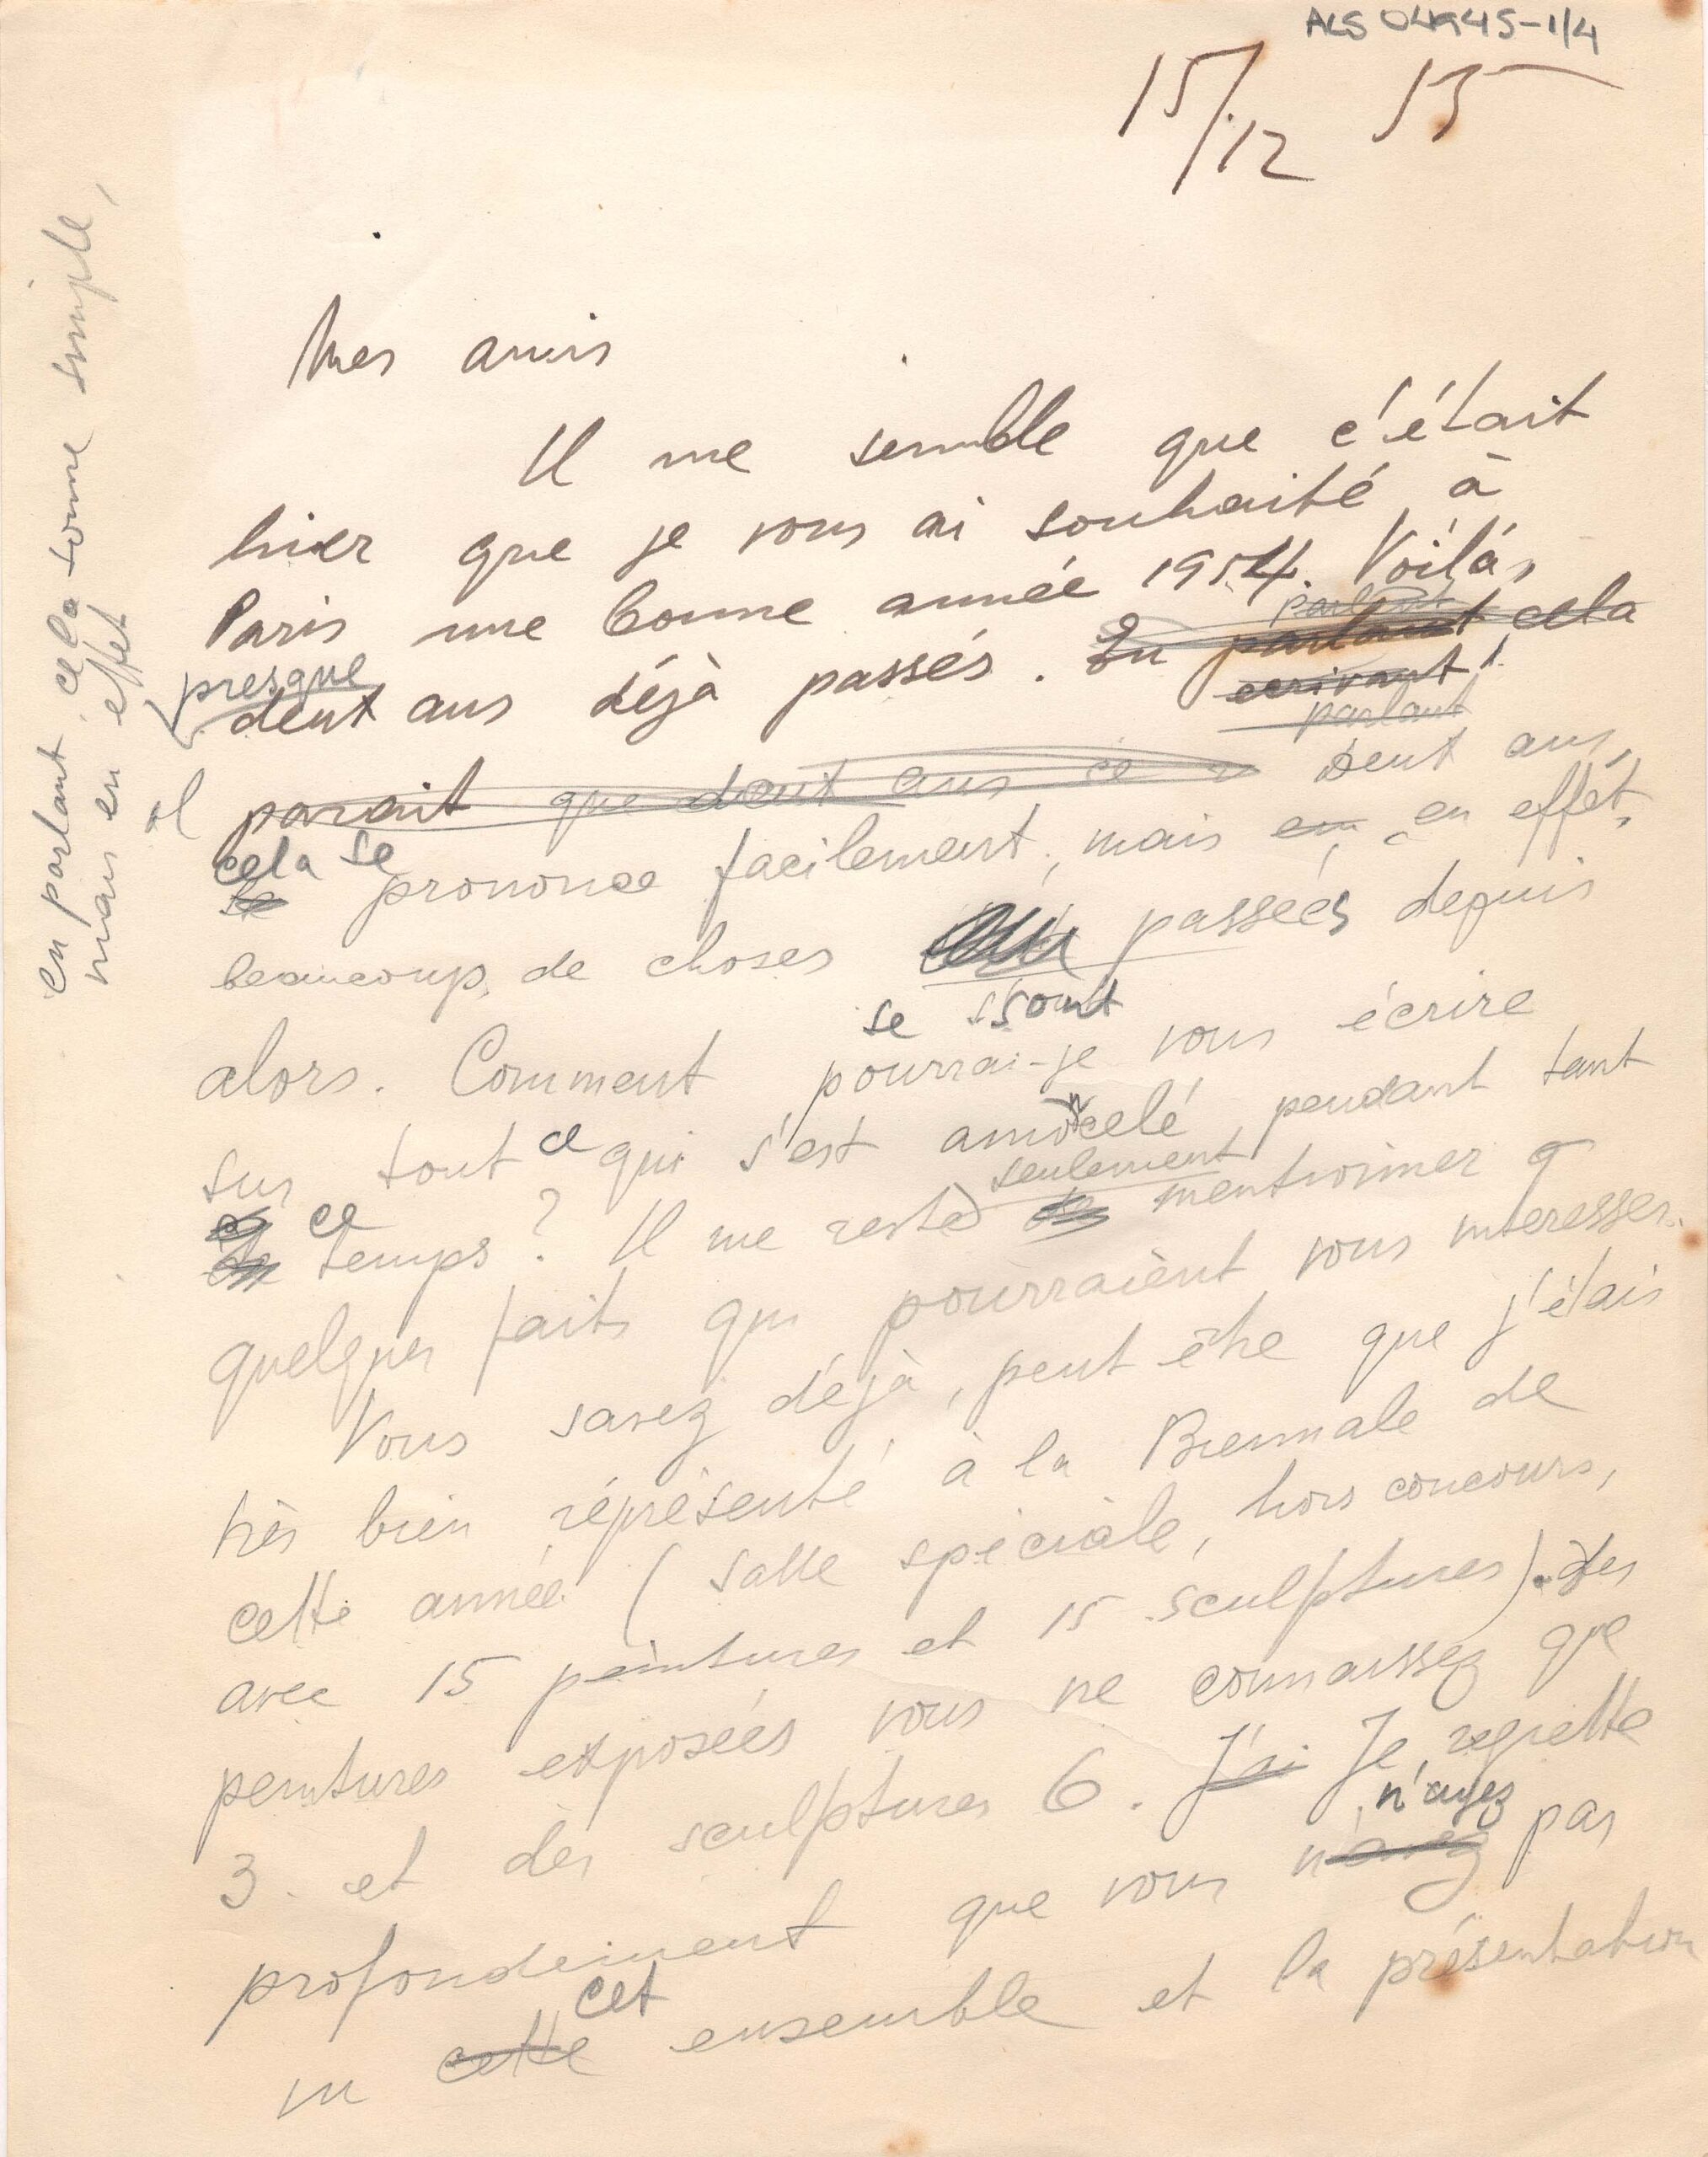 ALS 04945-1/4
15/12 55
Mes amis
Il me semble que c'était
hier que je vous ai souhaité à
Paris une bonne année 1954. Voilás
parlant
presque
deut ans déjà passés. En parlant cela
ecrivant
parlant
al parait que deut ans ce deut ans
cela se
se prononce facilement, mais en en effét,
beaucoup de choses passées depuis
se ssont
alors. Comment pourrai-je vous écrire
sur tout ce qui s'est amoncelé pendant tant
ce seulement
de temps ? Il me reste de mentionner
quelques faits qui pourraiènt vous interesser.
Vous savez déjà, peut être que j'étais
très bien réprèsenté à la Biennale de
cette année (salle spéciàle, hors concours,
avec 15 peintures et 15 sculptures). des
peintures exposées vous ne connaissez que
3 et dès sculptures 6. J'ai Je regrette
n'ayez
profondement que vous n'avez pas
cet
vu cette ensemble et la présentation
en parlant cela sonne simple,
mais en effet